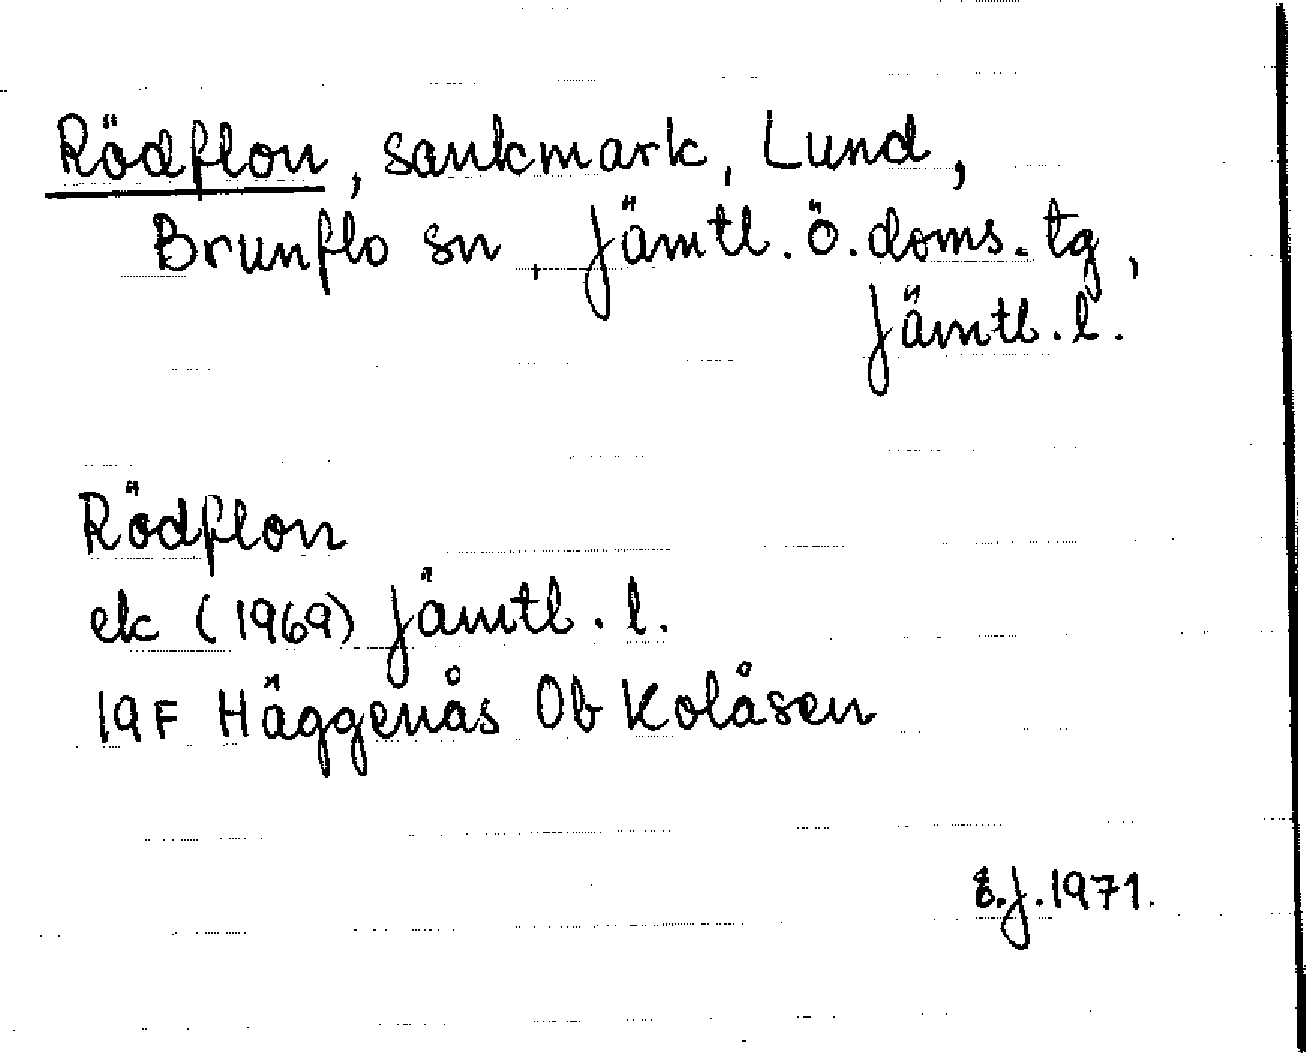 Rödflon, sankmark, Lund,
Brunflo sn, Jämtl. ö. doms. tg,
Jämtl. l.
Rödflon
ek (1969) Jämtl. l.
19F Häggenås Ob Kolåsen
J. 1971.